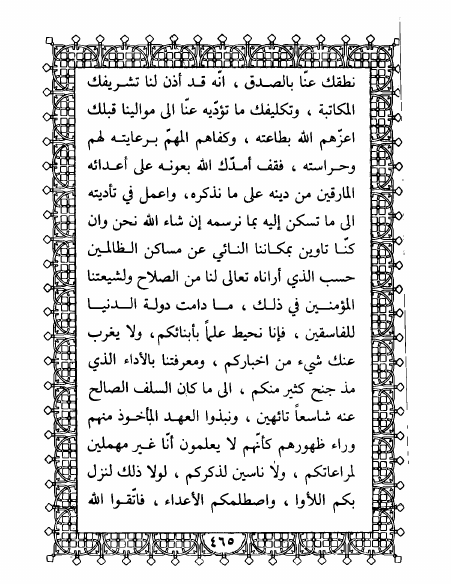 نطقك عنّا بالصدق ، انّه قد أذن لنا تشريفك
المكاتبة ، وتكليفك ما تؤدّيه عنّا الى موالينا قبلك
اعزّهم الله بطاعته ، وكفاهم المهمّ برعايته لهم
وحراسته ، فقف أمدّك الله بعونه على أعدائه
المارقين من دينه على ما نذكره، واعمل في تأديته
الى ما تسكن إليه بما نرسمه إن شاء الله نحن وان
كنّا ثاوين بمكاننا النائي عن مساكن الظالمين
حسب الذي أراناه تعالى لنا من الصلاح ولشيعتنا
المؤمنين في ذلك ، ما دامت دولة الدنيا
للفاسقين ، فإنا نحيط علماً بأبنائكم، ولا يغرب
عنك شيء من اخباركم ، ومعرفتنا بالأداء الذي
مذ جنح كثير منكم ، الى ما كان السلف الصالح
عنه شاسعاً تائهين ، ونبذوا العهد المأخوذ منهم
وراء ظهورهم كأنّهم لا يعلمون أنّا غير مهملين
لمراعاتكم ، ولا ناسين لذكركم ، لولا ذلك لنزل
بكم اللأوا ، واصطلمكم الأعداء ، فاتّقوا الله
٤٦٥